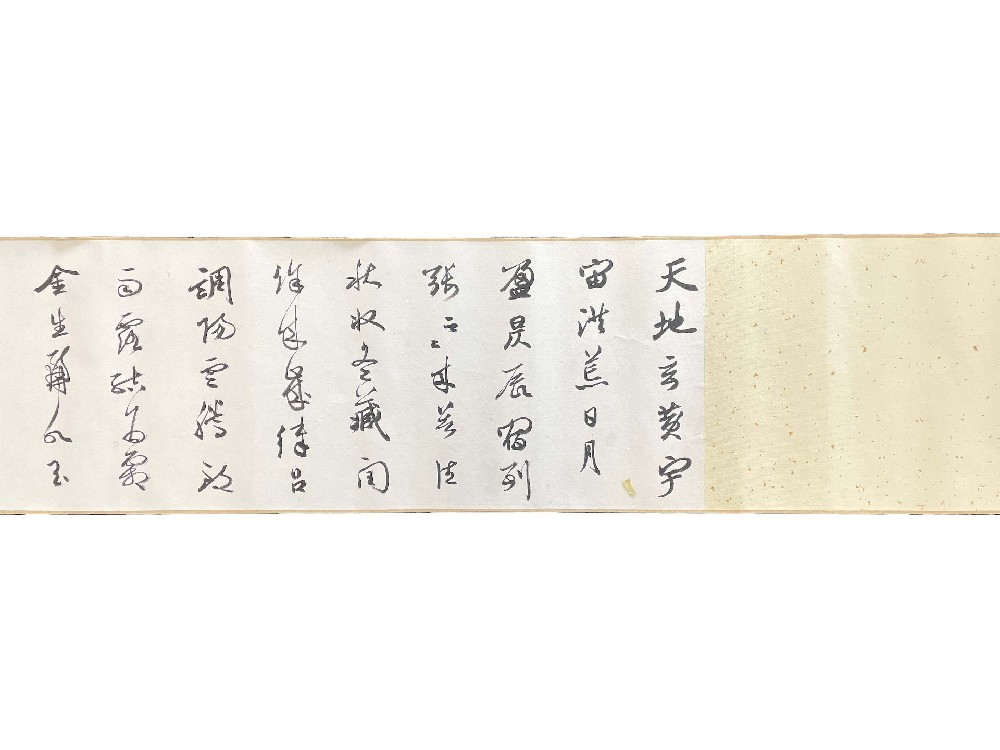 天地玄黄宇
宙洪荒日月
盈昃辰宿列
張寒来暑往
秋收冬藏閏
餘成歲律吕
調陽雲騰致
雨露結為霜
金生麗水玉